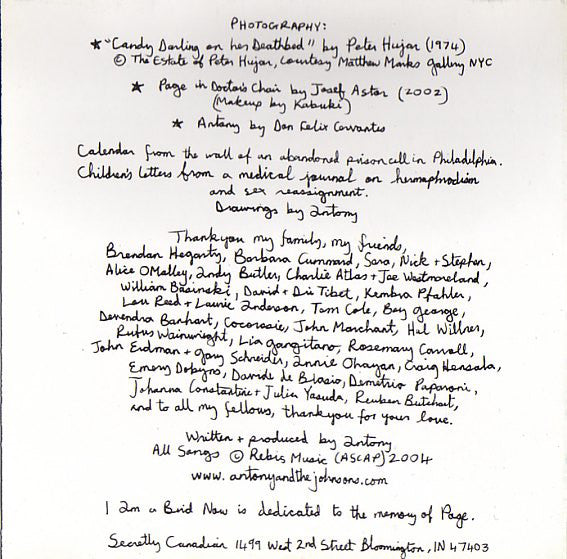 PHOTOGRAPHY:
★ "Candy Darling on her Deathbed" by Peter Hujar (1974)
© The Estate of Peter Hujar, courtesy Matthew Marks gallery NYC
★ Page in Doctor's Chair by Josef Astor (2002)
(Makeup by Kabuki)
★ Antony by Don Felix Cervantes
Calendar from the wall of an abandoned prison cell in Philadelphia.
Children's letters from a medical journal on hermephrodism
and sex reassignment.
Drawings by Antony
Thankyou my family, my friends,
Brendan Hegarty, Barbara Cummard, Sara, Nick + Stephen,
Alice O'Malley, Andy Butler, Charlie Atlas + Joe Westmoreland,
William Basinski, David + Dis Tibet, Kembra Pfahler,
Lou Reed + Laurie Anderson, Tom Cole, Boy george,
Devendra Banhart, Cocorosie, John Marchant, Hal Willner,
Rufus Wainwright, Lia gangitano, Rosemary Carroll,
John Erdman + gary Schneider, Annie Ohayon, Craig Hensala,
Emery Dobyns, Davide de Blasio, Demetrio Paparoni,
Johanna Constantine + Julia Yasuda, Reuben Butchart,
and to all my fellows, thankyou for your love.
Written + produced by Antony
All Songs © Rebis Music (ASCAP) 2004
www.antonyandthejohnsons.com
I Am a Bird Now is dedicated to the memory of Page.
Secretly Canadian 1499 West 2nd Street Bloomington, IN 47403